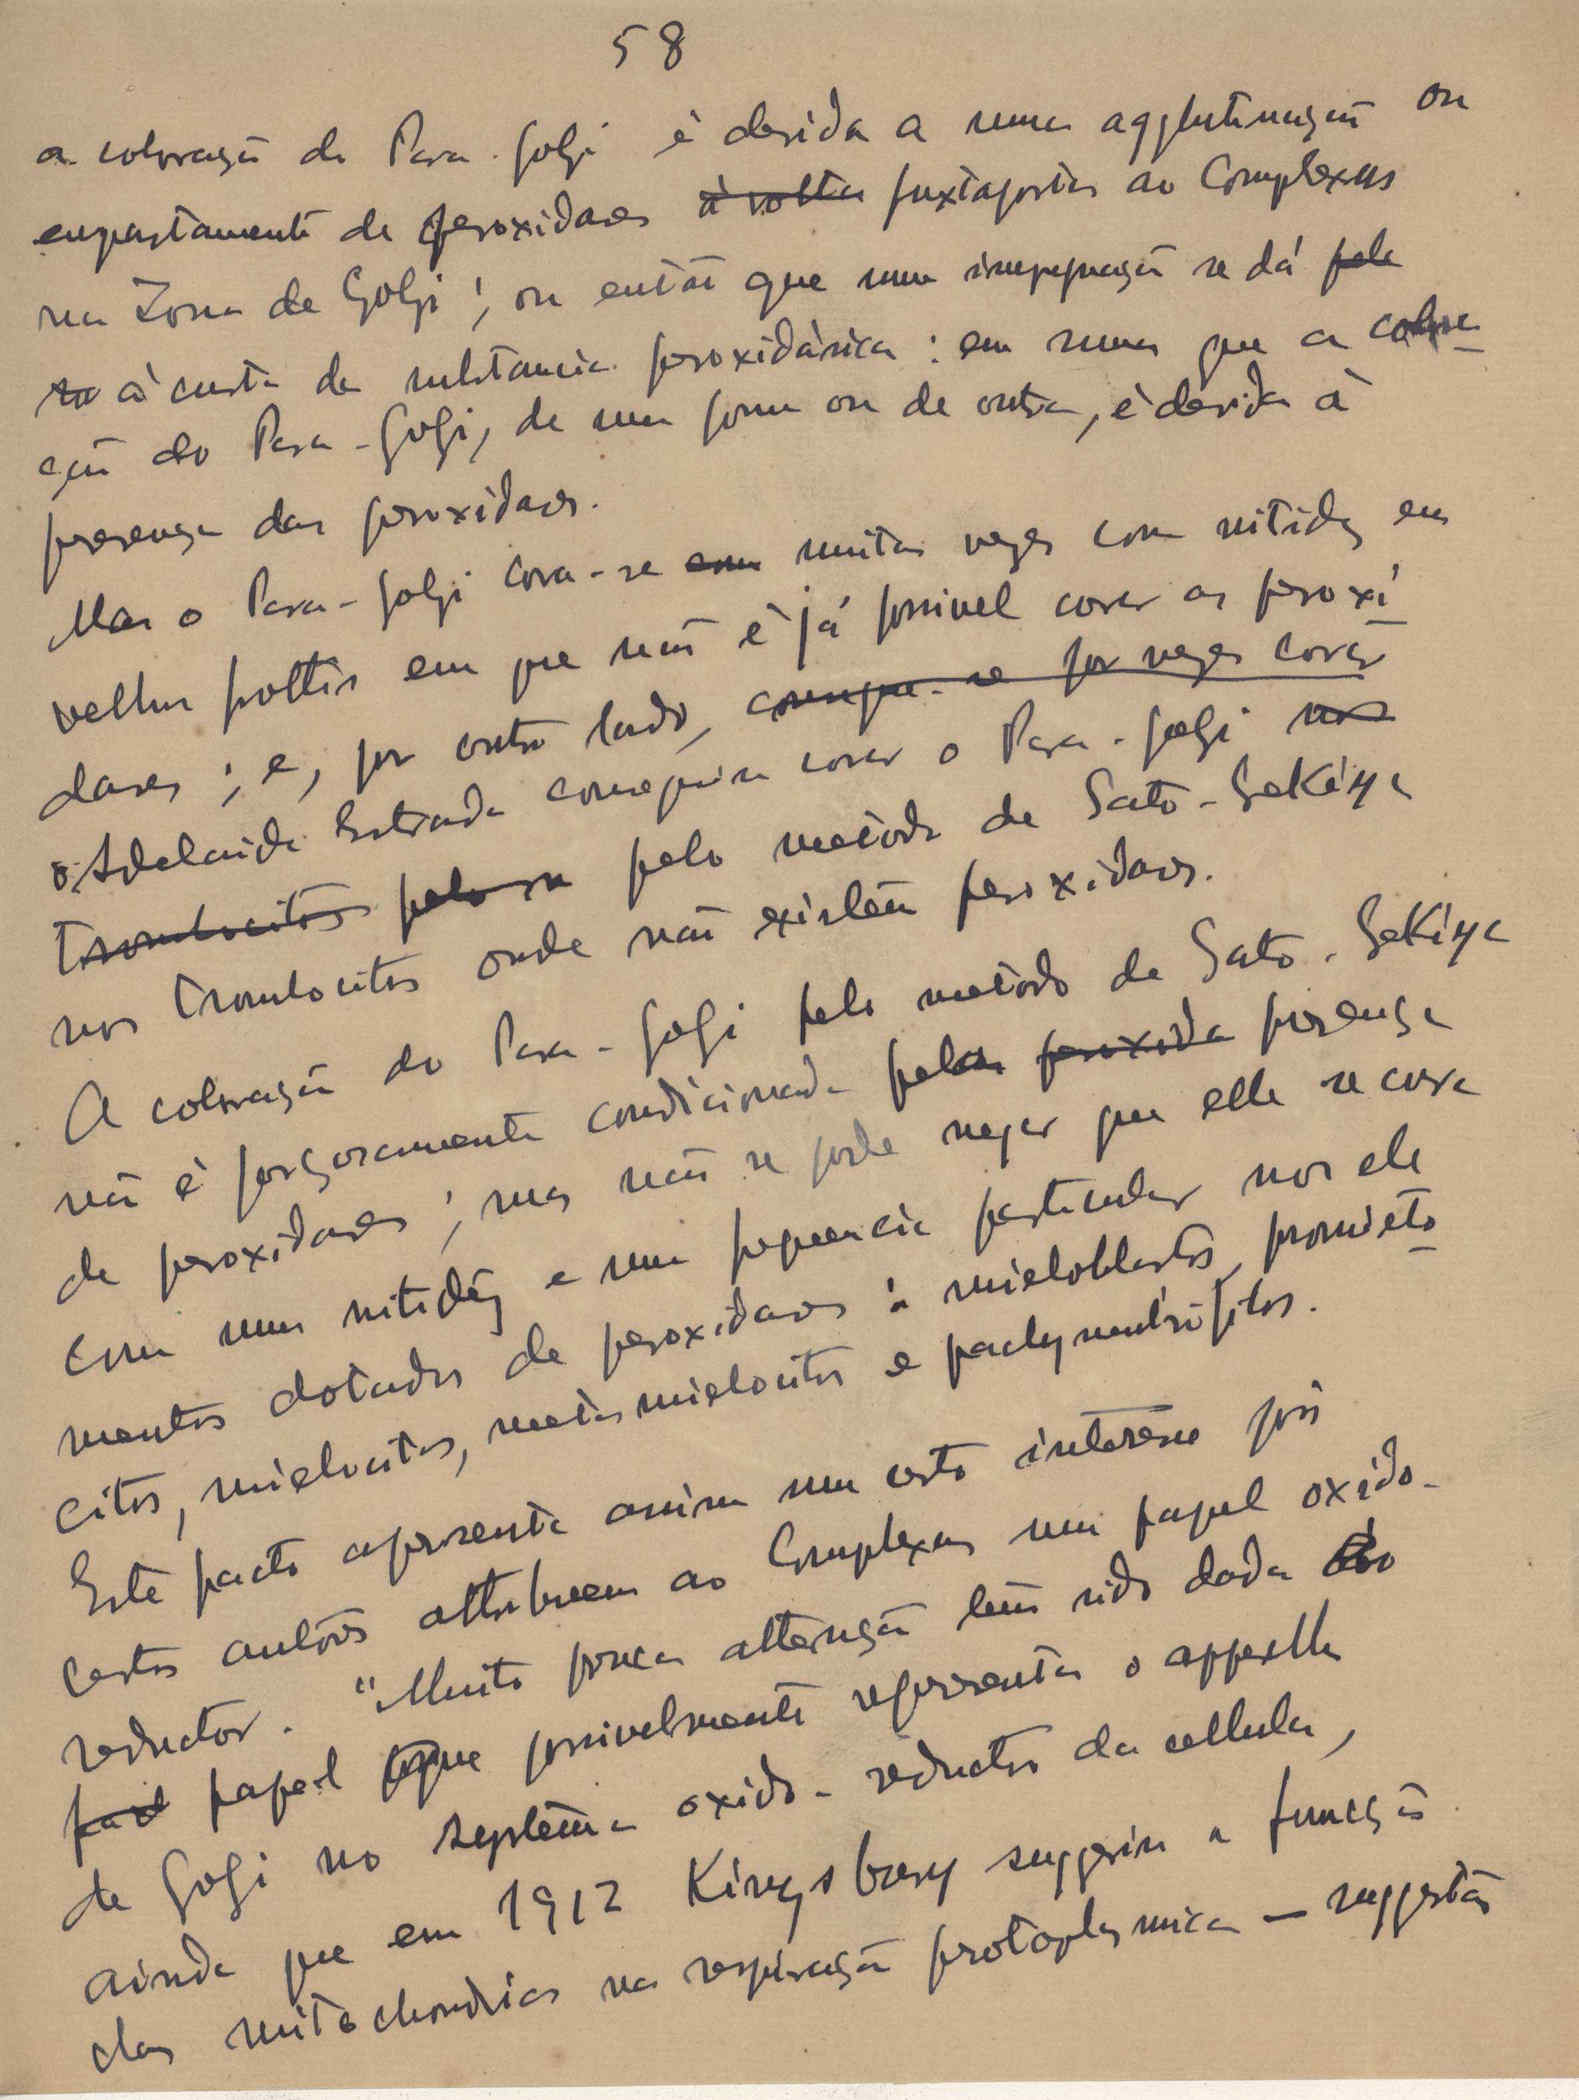 58
a coloração do Para-Golgi é devida a uma agglutinação ou
empastamento de peroxidases à volta juxtapostas ao Complexus
na Zona de Golgi; ou então que uma impregnação se dá pela
à custa da substancia peroxidásica: em suma que a colora-
ção do Para-Golgi, de uma forma ou de outra, é devida à
presença das peroxidases.
Mas o Para-Golgi cora-se com muitas vezes com nitidez em
velhos frottis em que não é já possivel corar as peroxi-
dases; e, por outro lado, consegue-se por vezes corar
Adelaide Estrada conseguiu corar o Para-Golgi nos
Trombocitos pelo pelo metodo de Sato-Sekiya
nos Trombocitos onde não existem peroxidases.
A coloração do Para-Golgi pelo metodo de Sato-Sekiya
não é forçosamente condicionada pela peroxida presença
de peroxidases; mas não se pode negar que elle se cora
com uma nitidez e uma frequencia particular nos ele
mentos dotados de peroxidases: mieloblastos, promielo-
citos, mielocitos, metamielocitos e pachyneutrófilos.
Este facto apresenta assim um certo interesse pois
certos autores attribuem ao Complexus um papel oxido-
reductor. "Muito pouca attenção tem sido dada ao
papel que possivelmente representa o apparelho
de Golgi no systema oxido-reductor da cellula,
ainda que em 1912 Kingsbury suggeriu a funcção
das mitochondrias na respiração protoplasmica — suggestão